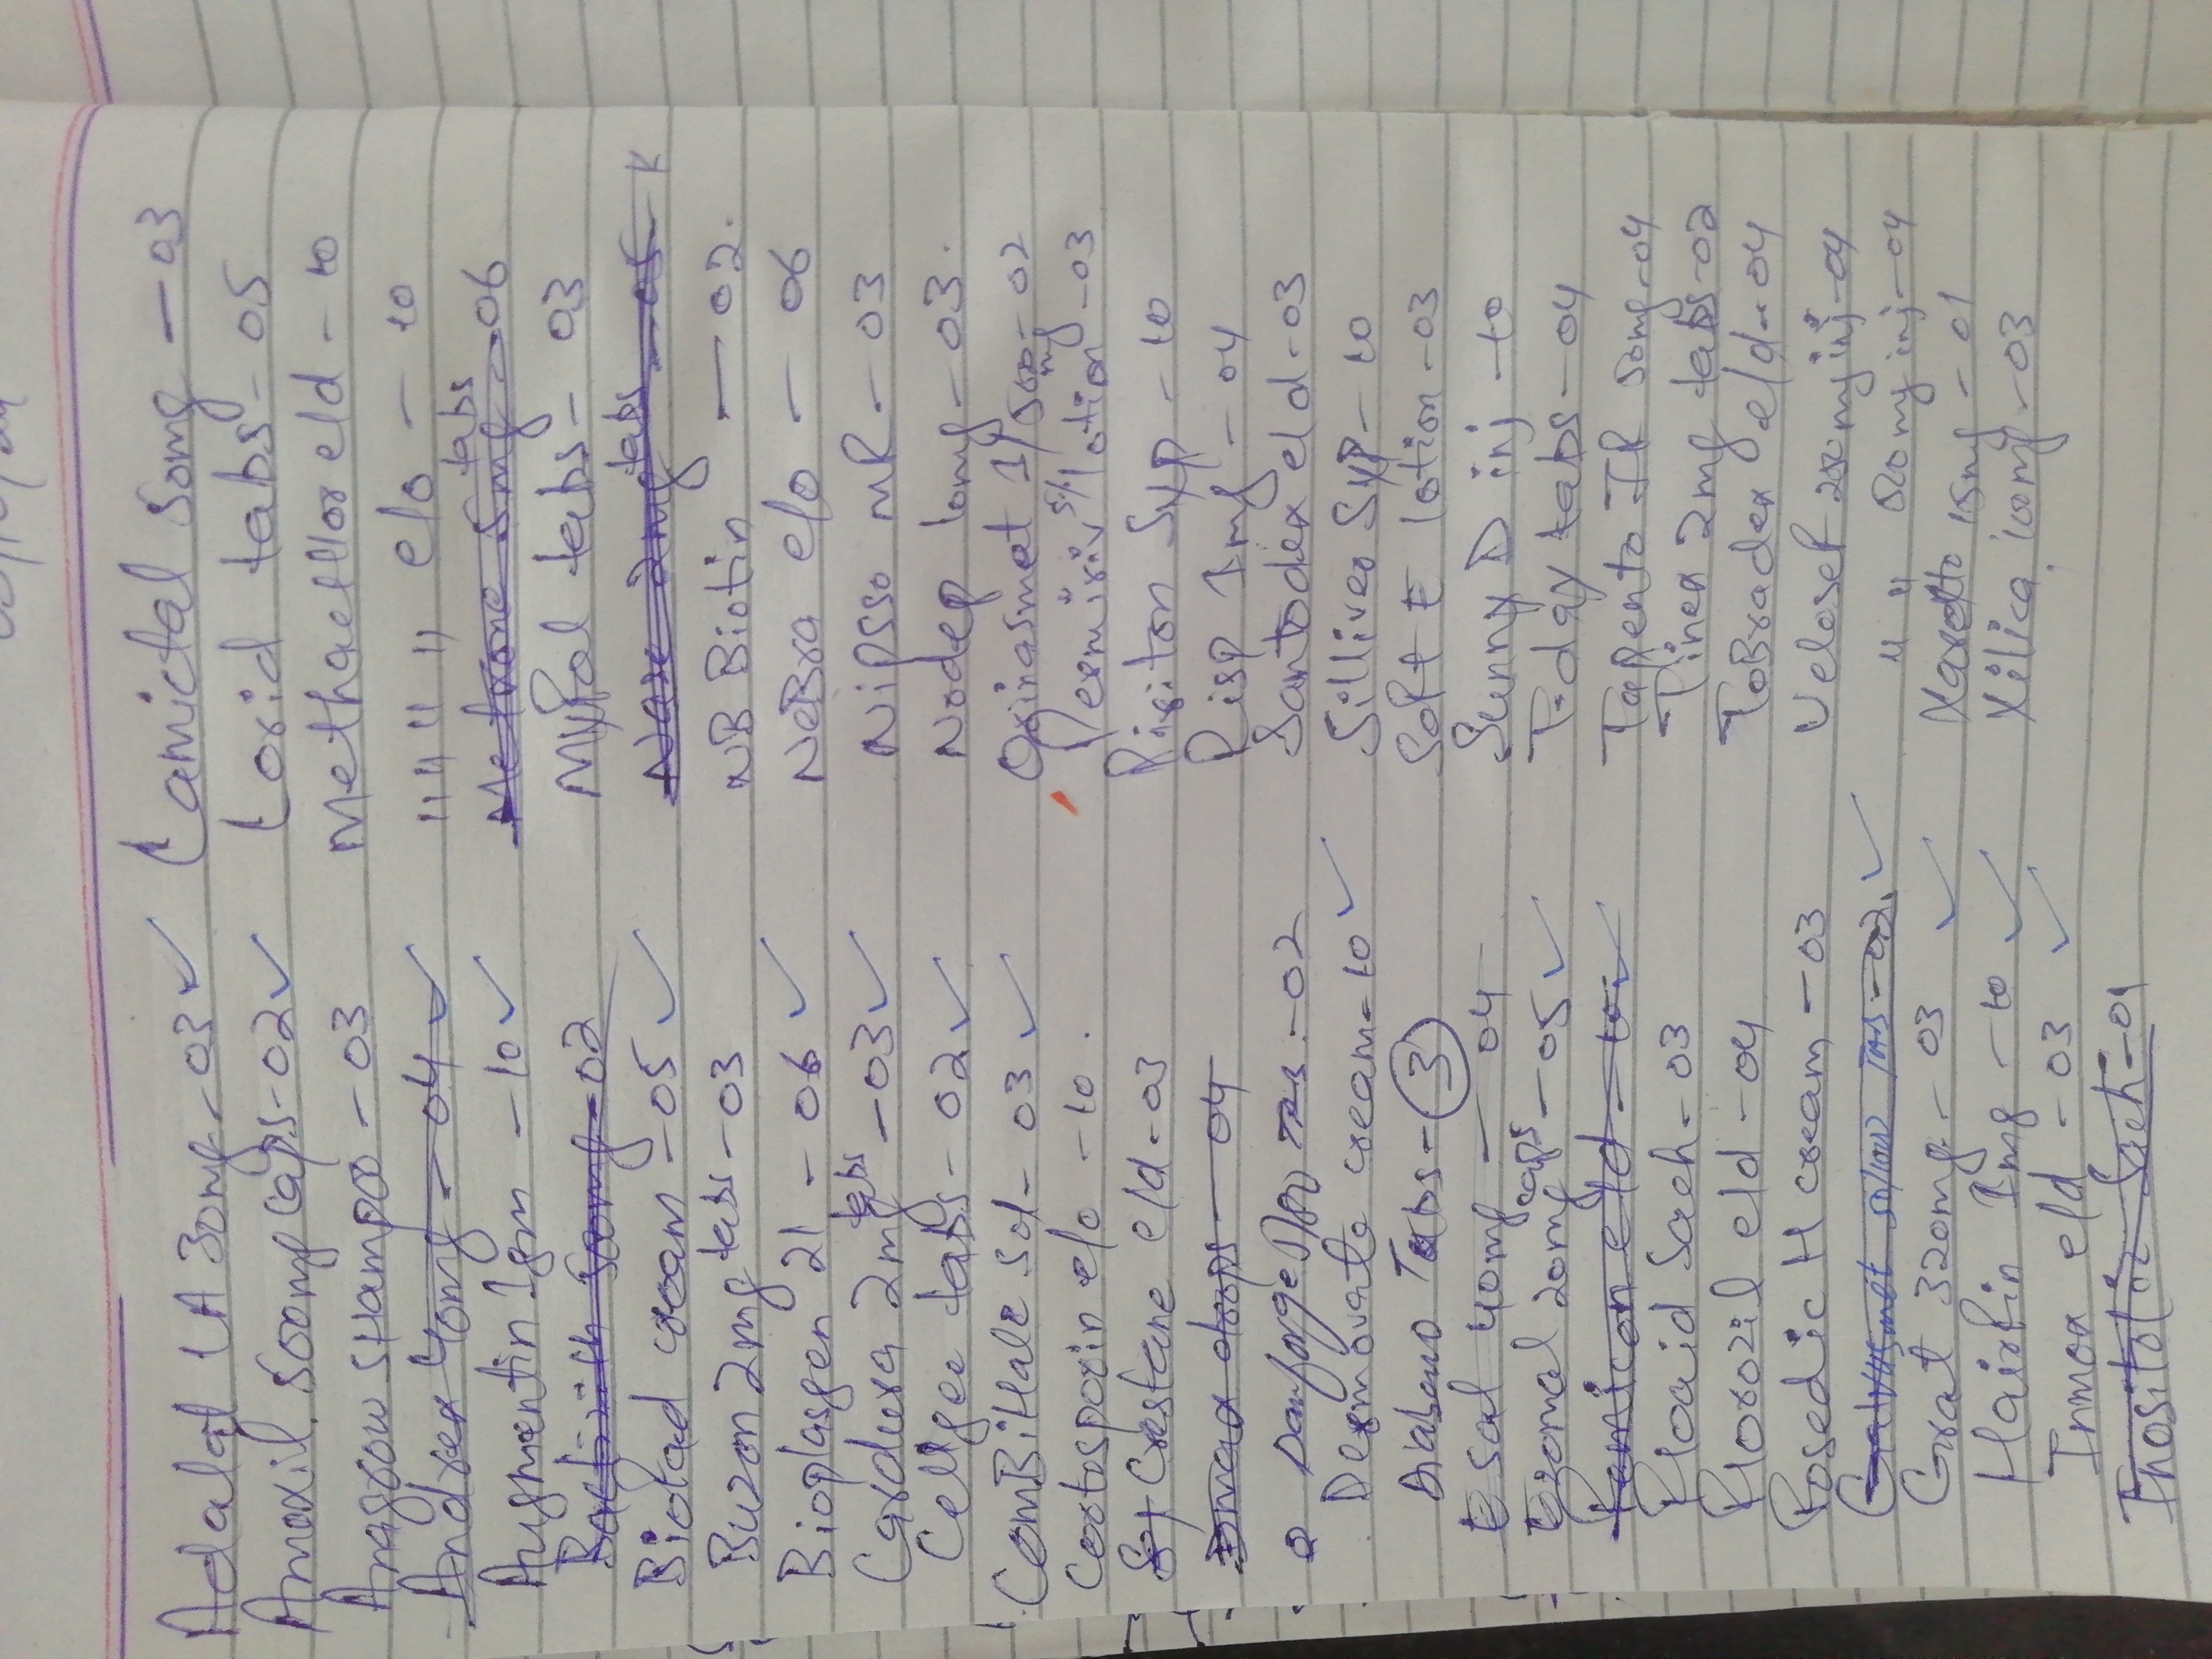 Adalat LA 30mg - 03 ✓
Amoxil 500mg caps - 02 ✓
Anagrow SHampoo - 03
Andrex 40mg - 04 ✓
Augmentin 1gm - 10 ✓
50mg - 02
Biotad cream - 05 ✓
Buzon 2mg tabs - 03
Bioplasgen 21 - 06 ✓
Cardura 2mg tabs - 03 ✓
Cellgee tabs - 02 ✓
ComBiHale sol - 03 ✓
Cortosporin e/o - 10 .
Crestane e/d - 03
drops - 04
Danforge - 02
Dermovate cream - 10 ✓
Diabeno Tabs - 3
Esal 40mg - 04
Ezomol 20mg caps - 05 ✓
Famicon e/d - 10 ✓
Floaid Sach - 03
Florozil e/d - 04
Fosedic H cream - 03
Galvusmet 50/1000 TABS - 02 ✓
Grat 320mg - 03 ✓
Hairfin 1mg - 10 ✓
Inmox e/d - 03 ✓
Inositol Sach - 01
Lamictal 50mg - 03
Lorid tabs - 05
Methachlor e/d - 10
" " " " e/o - 10
5mg tabs - 06
Myfol tabs - 03
tabs - 05 K
NB Biotin - 02.
NeBra e/o - 06
Nipsso MR - 03
Nodep 10mg - 03.
Orinasmet 1/500mg - 02
Permisiv 5% lotion - 03
Risiton Syp - 10
Risp 1mg - 04
Santodex e/d - 03
Silliver Syp - 10
Soft E lotion - 03
Sunny D inj - 10
T-day tabs - 04
Tapento IR 50mg - 04
Pinex 2mg tabs - 02
ToBradex e/d - 04
Velosef 250mg inj - 04
" " 500mg inj - 04
Xarelto 15mg - 01
Xilica 100mg - 03